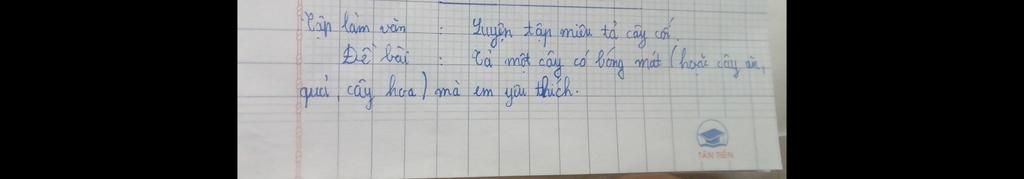 Tập làm văn : Luyện tập miêu tả cây cối.
Đề bài : Tả một cây có bóng mát (hoặc cây ăn,
quả, cây hoa) mà em yêu thích.
TÂN TIẾN